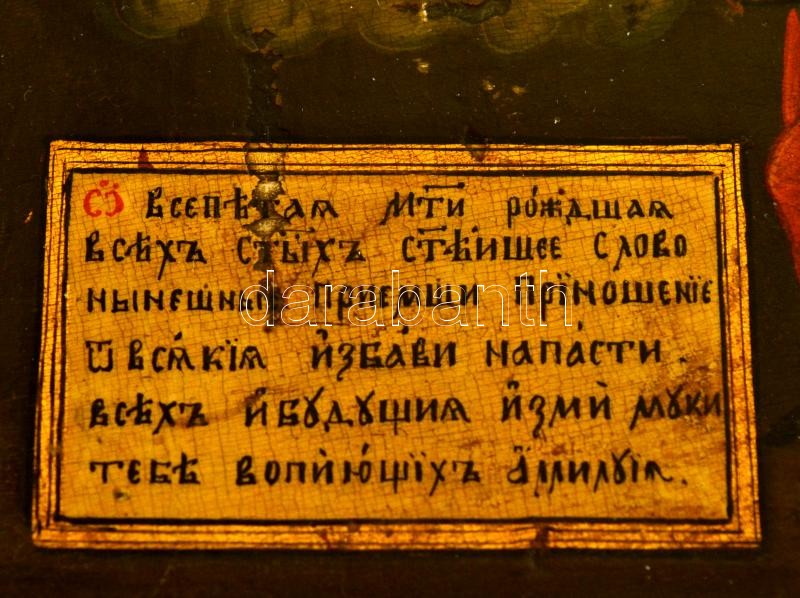 Ѽ всепѣтая мт҃и ро́ждшая
всѣхъ ст҃ы́хъ ст҃ѣишее слово
нынешнье прїемши прїношенїе
ѿ вся́кїя и҆зба́ви напа́сти.
всѣхъ и҆ будущия и҆зми̇ муки
тебѣ вопїю́щїхъ а҆ллилуїя.
darabanth